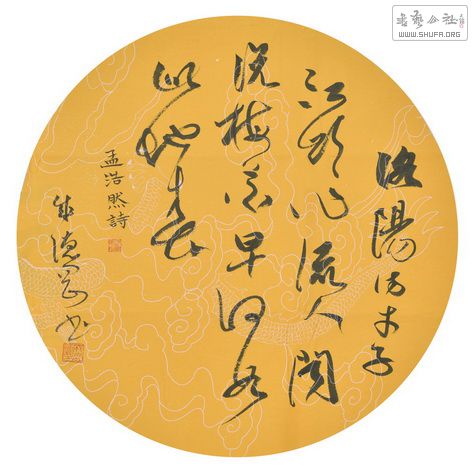 洛陽访才子
江岭作流人闻
说梅花早何如
此地春
孟浩然詩
德 书
書藝公社
WWW.SHUFA.ORG